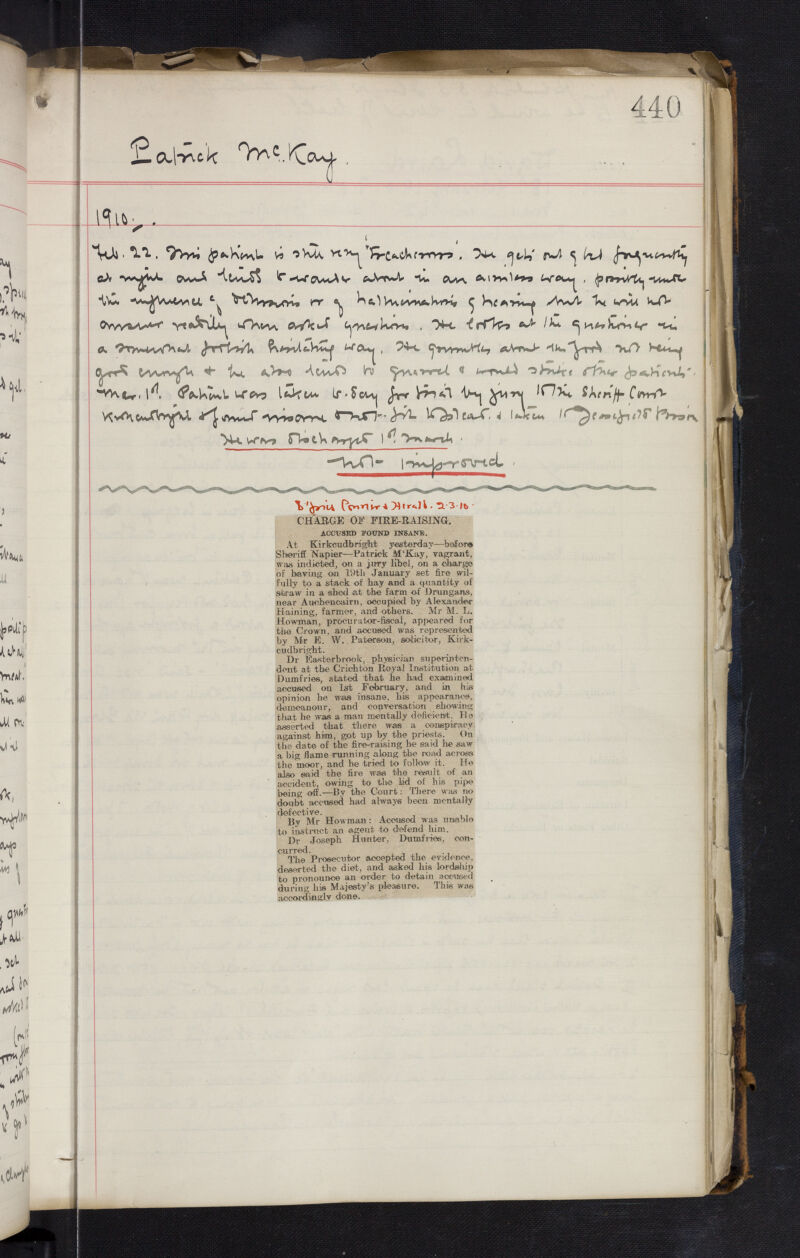 440
Patrick McKay.
1910.
Feb. 22. This patient is still very "treacherous". He gets out of bed frequently
at night and tends to wander about in an aimless way, possibly under
the influence of delusions or of hallucinations of hearing but he will not
answer readily when asked questions. He looks at the questioner in
a somewhat foolish hesitating way. He grumbles about the food not being
good enough & he also tends to quarrel & would strike other patients.
Mar. 1st. Patient was taken to-day for trial by jury to the Sheriff Court
Kirkcudbright & found insane & not fit to plead & taken to Prison
He was discharged 1st March.
Not improved.
D'fries Courier & Herald. 2-3-10.
CHARGE OF FIRE-RAISING.
ACCUSED FOUND INSANE.
At Kirkcudbright yesterday—before
Sheriff Napier—Patrick M'Kay, vagrant,
was indicted, on a jury libel, on a charge
of having on 19th January set fire wil-
fully to a stack of hay and a quantity of
straw in a shed at the farm of Drungans,
near Auchencairn, occupied by Alexander
Haining, farmer, and others. Mr M. L.
Howman, procurator-fiscal, appeared for
the Crown, and accused was represented
by Mr E. W. Paterson, solicitor, Kirk-
cudbright.
Dr Easterbrook, physician superinten-
dent at the Crichton Royal Institution at
Dumfries, stated that he had examined
accused on 1st February, and in his
opinion he was insane, his appearance,
demeanour, and conversation showing
that he was a man mentally deficient. He
asserted that there was a conspiracy
against him, got up by the priests. On
the date of the fire-raising he said he saw
a big flame running along the road across
the moor, and he tried to follow it. He
also said the fire was the result of an
accident, owing to the lid of his pipe
being off.—By the Court: There was no
doubt accused had always been mentally
defective.
By Mr Howman: Accused was unable
to instruct an agent to defend him.
Dr Joseph Hunter, Dumfries, con-
curred.
The Prosecutor accepted the evidence,
deserted the diet, and asked his lordship
to pronounce an order to detain accused
during his Majesty's pleasure. This was
accordingly done.